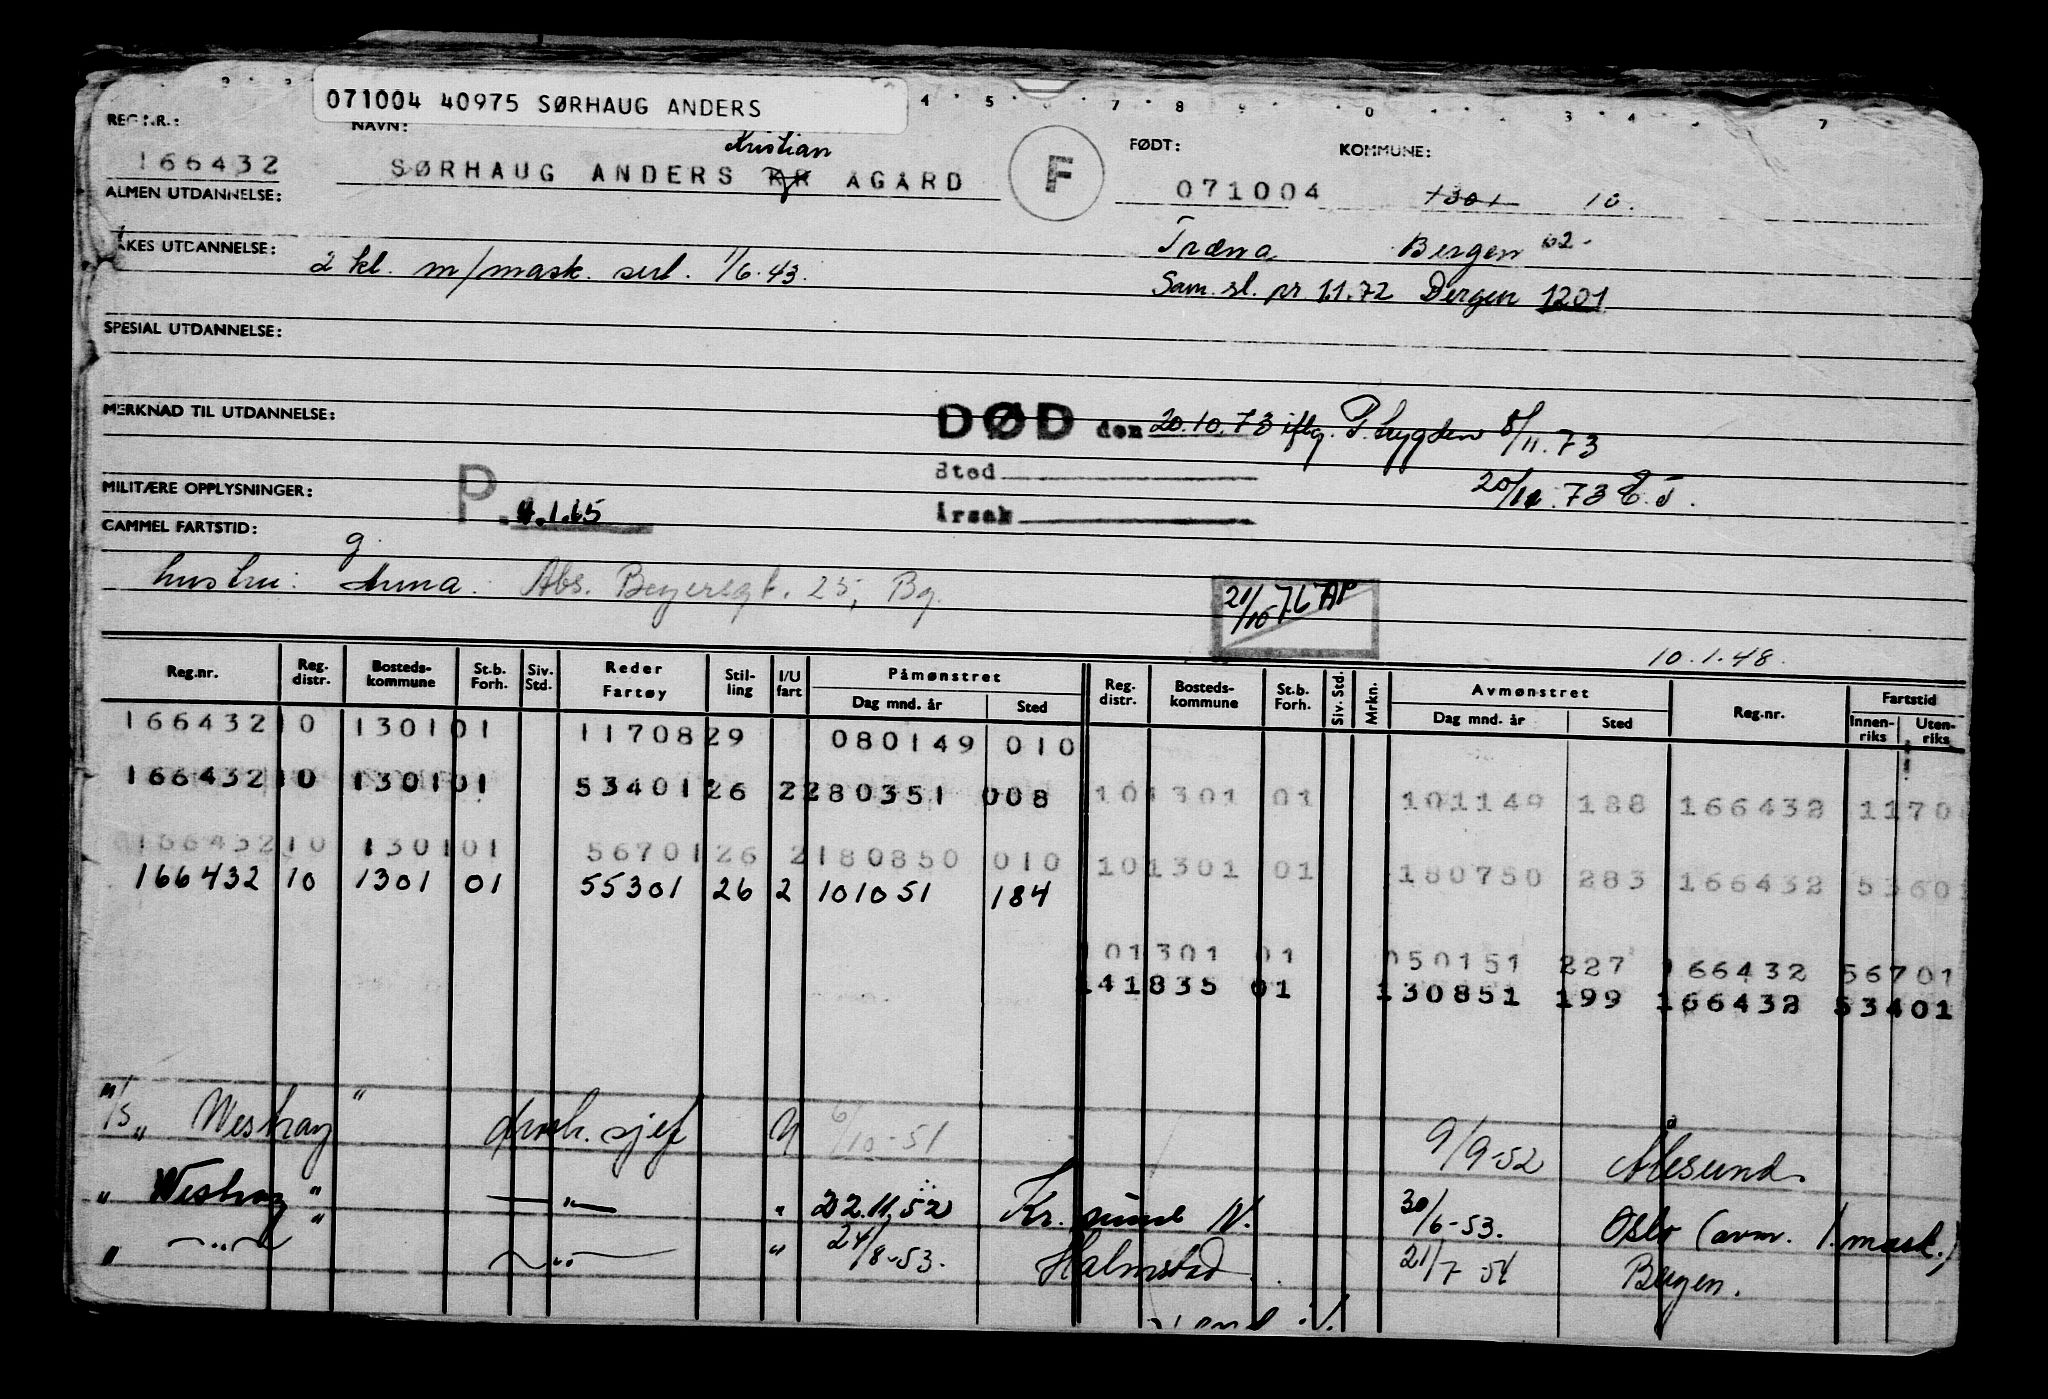 071004 40975 SØRHAUG ANDERS
REG.NR.: NAVN: FØDT: KOMMUNE:
Kristian
166432 SØRHAUG ANDERS KR AGARD F 071004 1301 10.
ALMEN UTDANNELSE:
Træna Bergen 02-
YRKES UTDANNELSE: 2 kl. m/mask. sert. 1/6.43.
Sam. sl. pr 1.1.72 Bergen 1201
SPESIAL UTDANNELSE:
MERKNAD TIL UTDANNELSE:
DØD den 20.10.73 iflg. P. Lygden 8/11.73
Sted
20/11.73 E.T.
MILITÆRE OPPLYSNINGER: P. 4.1.65
Årsak
GAMMEL FARTSTID:
g.
hustru: Anna. Abs. Beyersgt. 25, Bg.
21/10 76 AP
10.1.48.
Reg.nr. Reg. distr. Bosteds-kommune St.b. Forh. Siv. Std. Reder Fartøy Stil-ling I/U fart Påmønstret Dag mnd. år Sted Reg. distr. Bosteds-kommune St.b. Forh. Siv. Std. Mrkn. Avmønstret Dag mnd. år Sted Reg.nr. Fartstid Innen-riks Uten-riks
166432 10 1301 01 11708 29 080149 010
166432 10 1301 01 53401 26 2 280351 008 10 1301 01 101149 188 166432 1170
166432 10 1301 01 56701 26 2 180850 010 10 1301 01 180750 283 166432 5360
166432 10 1301 01 55301 26 2 101051 184
10 1301 01 050151 227 166432 56701
14 1835 01 130851 199 166432 53401
M/S "Westray" U 6/10-51 9/9-52 Ålesund
" Westray " — " — " 22.11.52 Kr. sund N. 30/6-53. Oslo (avm. 1. mask.)
" — " — " — " — " 24/8-53. Halmstad 21/7-54 Bergen.